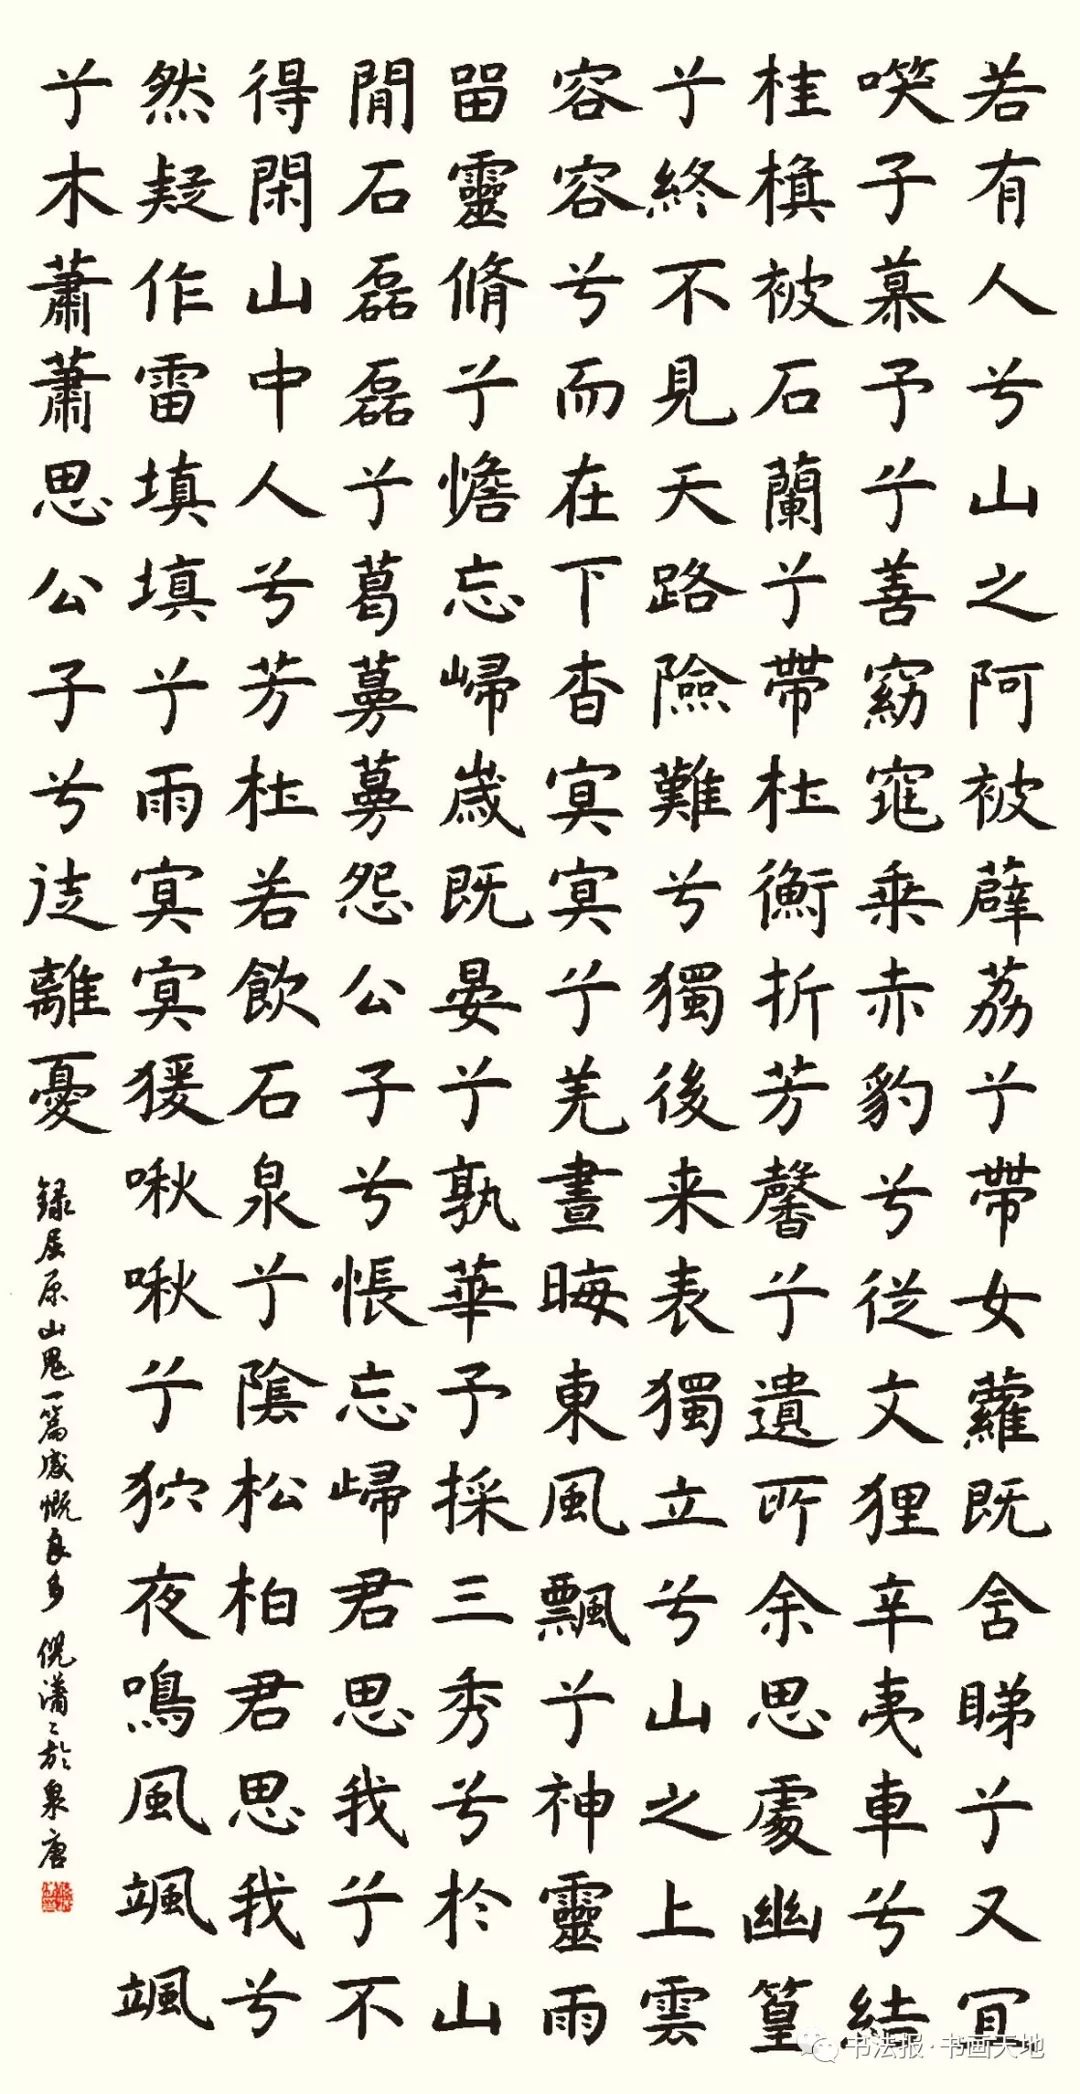 若有人兮山之阿被薜荔兮帶女蘿既含睇兮又宜
笑子慕予兮善窈窕乘赤豹兮從文狸辛夷車兮結
桂旗被石蘭兮帶杜衡折芳馨兮遺所余思處幽篁
兮終不見天路險難兮獨後来表獨立兮山之上雲
容容兮而在下杳冥冥兮羌晝晦東風飄兮神靈雨
留靈脩兮憺忘歸歲既晏兮孰華予採三秀兮於山
閒石磊磊兮葛蔓蔓怨公子兮悵忘歸君思我兮不
得閑山中人兮芳杜若飲石泉兮蔭松柏君思我兮
然疑作雷填填兮雨冥冥猨啾啾兮狖夜鳴風颯颯
兮木蕭蕭思公子兮徒離憂
録屈原山鬼一篇感慨良多 倪潇〻於泉唐
书法报·书画天地